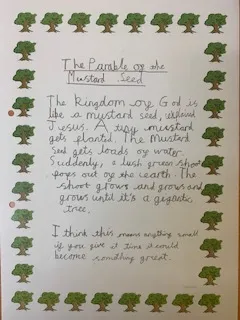 The Parable of the
Mustard Seed
The Kingdom of God is
like a mustard seed, explained
Jesus. A tiny mustard
gets planted. The Mustard
Seed gets loads of water.
Suddenly, a lush green shoot
pops out of the earth. The
shoot grows and grows and
grows until it's a gigantic
tree.
I think this means anything small
if you give it time it could
become something great.